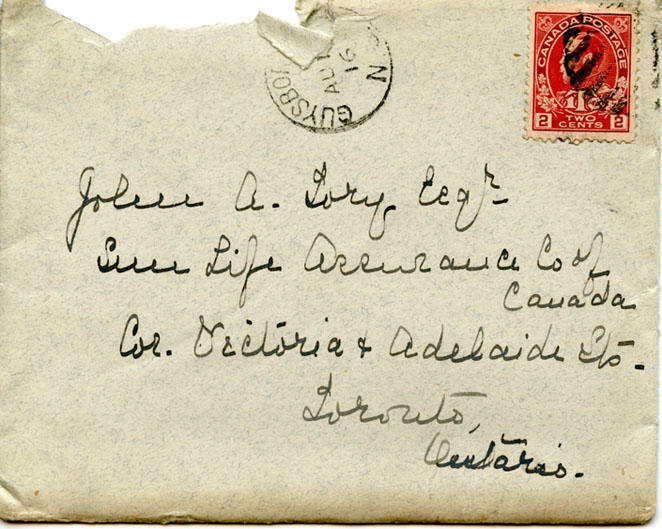 CANADA POSTAGE
2 TWO CENTS 2
GUYSBO
AU
16
N
John A. Tory Esqr
Sun Life Assurance Co of
Canada
Cor. Victoria & Adelaide Sts.
Toronto,
Ontario.